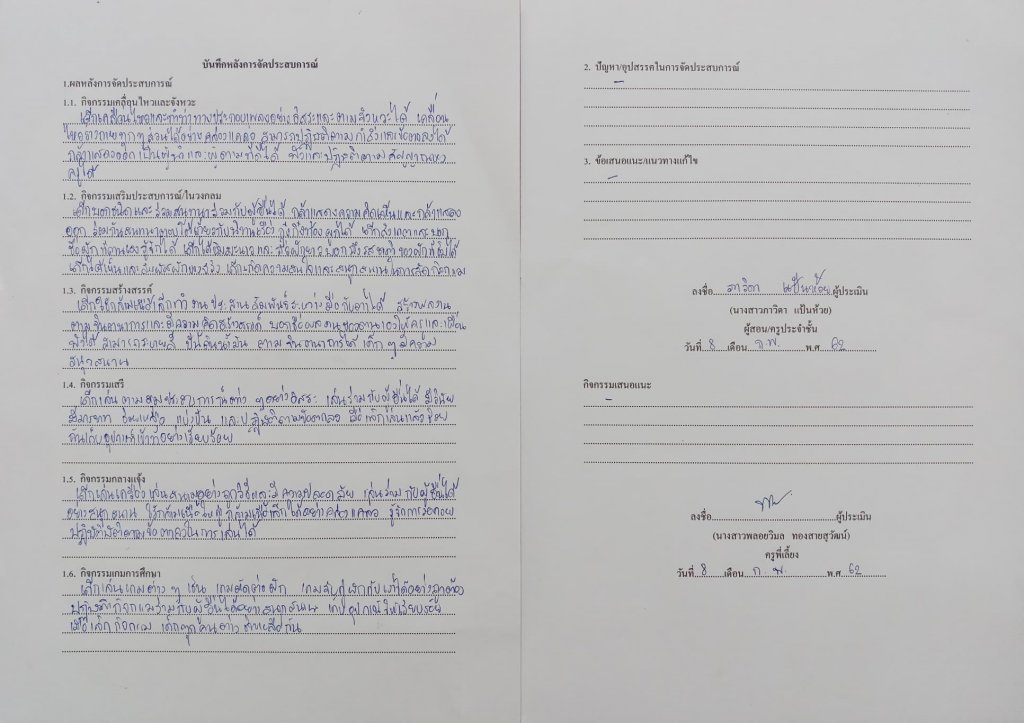 บันทึกหลังการจัดประสบการณ์
1.ผลหลังการจัดประสบการณ์
1.1. กิจกรรมเคลื่อนไหวและจังหวะ
เด็กเคลื่อนไหวและทำท่าทางประกอบเพลงอย่างอิสระและตามจังหวะได้ เคลื่อน
ไหวร่างกายทุกๆส่วนได้อย่างคล่องแคล่ว สามารถปฏิบัติตามคำสั่งและข้อตกลงได้
กล้าแสดงออก เป็นผู้นำและผู้ตามที่ดีได้ ฟังและปฏิบัติตามสัญญาณของ
ครูได้
1.2. กิจกรรมเสริมประสบการณ์/ในวงกลม
เด็กบอกชนิดและร่วมสนทนาร่วมกับผู้อื่นได้ กล้าแสดงความคิดเห็นและกล้าแสดง
ออก ร่วมกันสนทนาตอบโต้เกี่ยวกับนิทานเรื่อง
ชื่อผักที่ตนเองรู้จักได้
เด็กได้เห็นและสัมผัสผักของจริง เด็กเกิดความสนใจและสนุกสนานในการจัดกิจกรรม
1.3. กิจกรรมสร้างสรรค์
เด็กใช้กล้ามเนื้อเล็กทำงานประสานสัมพันธ์ระหว่างมือกับตาได้ สร้างผลงาน
ตามจินตนาการและมีความคิดสร้างสรรค์ บอกชื่อผลงานของตนเองให้ครูและเพื่อน
ฟังได้ สามารถระบายสี ปั้นดินน้ำมัน ตามจินตนาการได้ เด็กๆมีความ
สนุกสนาน
1.4. กิจกรรมเสรี
เด็กเล่นตามมุมประสบการณ์ต่าง ๆอย่างอิสระ เล่นร่วมกับผู้อื่นได้ มีวินัย
มีมารยาท ช่วยเหลือ แบ่งปัน และปฏิบัติตามข้อตกลง เมื่อเลิกเล่นแล้วช่วย
กันเก็บอุปกรณ์เข้าที่อย่างเรียบร้อย
1.5. กิจกรรมกลางแจ้ง
เด็กเล่นเครื่องเล่นสนามอย่างถูกวิธีและมีความปลอดภัย เล่นร่วมกับผู้อื่นได้
อย่างสนุกสนาน ใช้กล้ามเนื้อใหญ่ กล้ามเนื้อเล็กได้อย่างคล่องแคล่ว รู้จักการรอคอย
ปฏิบัติตัวตามข้อตกลงในการเล่นได้
1.6. กิจกรรมเกมการศึกษา
เด็กเล่นเกมต่าง ๆ เช่น เกมตัดต่อผัก เกมจับคู่ผักกับเงาได้อย่างถูกต้อง
ปฏิบัติกิจกรรมร่วมกับผู้อื่นได้อย่างสนุกสนาน เก็บอุปกรณ์ให้เรียบร้อย
เมื่อเลิกกิจกรรม เด็กทุกคนต่างช่วยเหลือกัน
2. ปัญหา/อุปสรรคในการจัดประสบการณ์
-
3. ข้อเสนอแนะ/แนวทางแก้ไข
-
ลงชื่อ ภาวิตา แป้นห้วย ผู้ประเมิน
(นางสาวภาวิตา แป้นห้วย)
ผู้สอน/ครูประจำชั้น
วันที่ 8 เดือน ก.พ. พ.ศ. 62
กิจกรรมเสนอแนะ
-
ลงชื่อ ผู้ประเมิน
(นางสาวพลอยวิมล ทองสายสุวัฒน์)
ครูพี่เลี้ยง
วันที่ 8 เดือน ก.พ. พ.ศ. 62